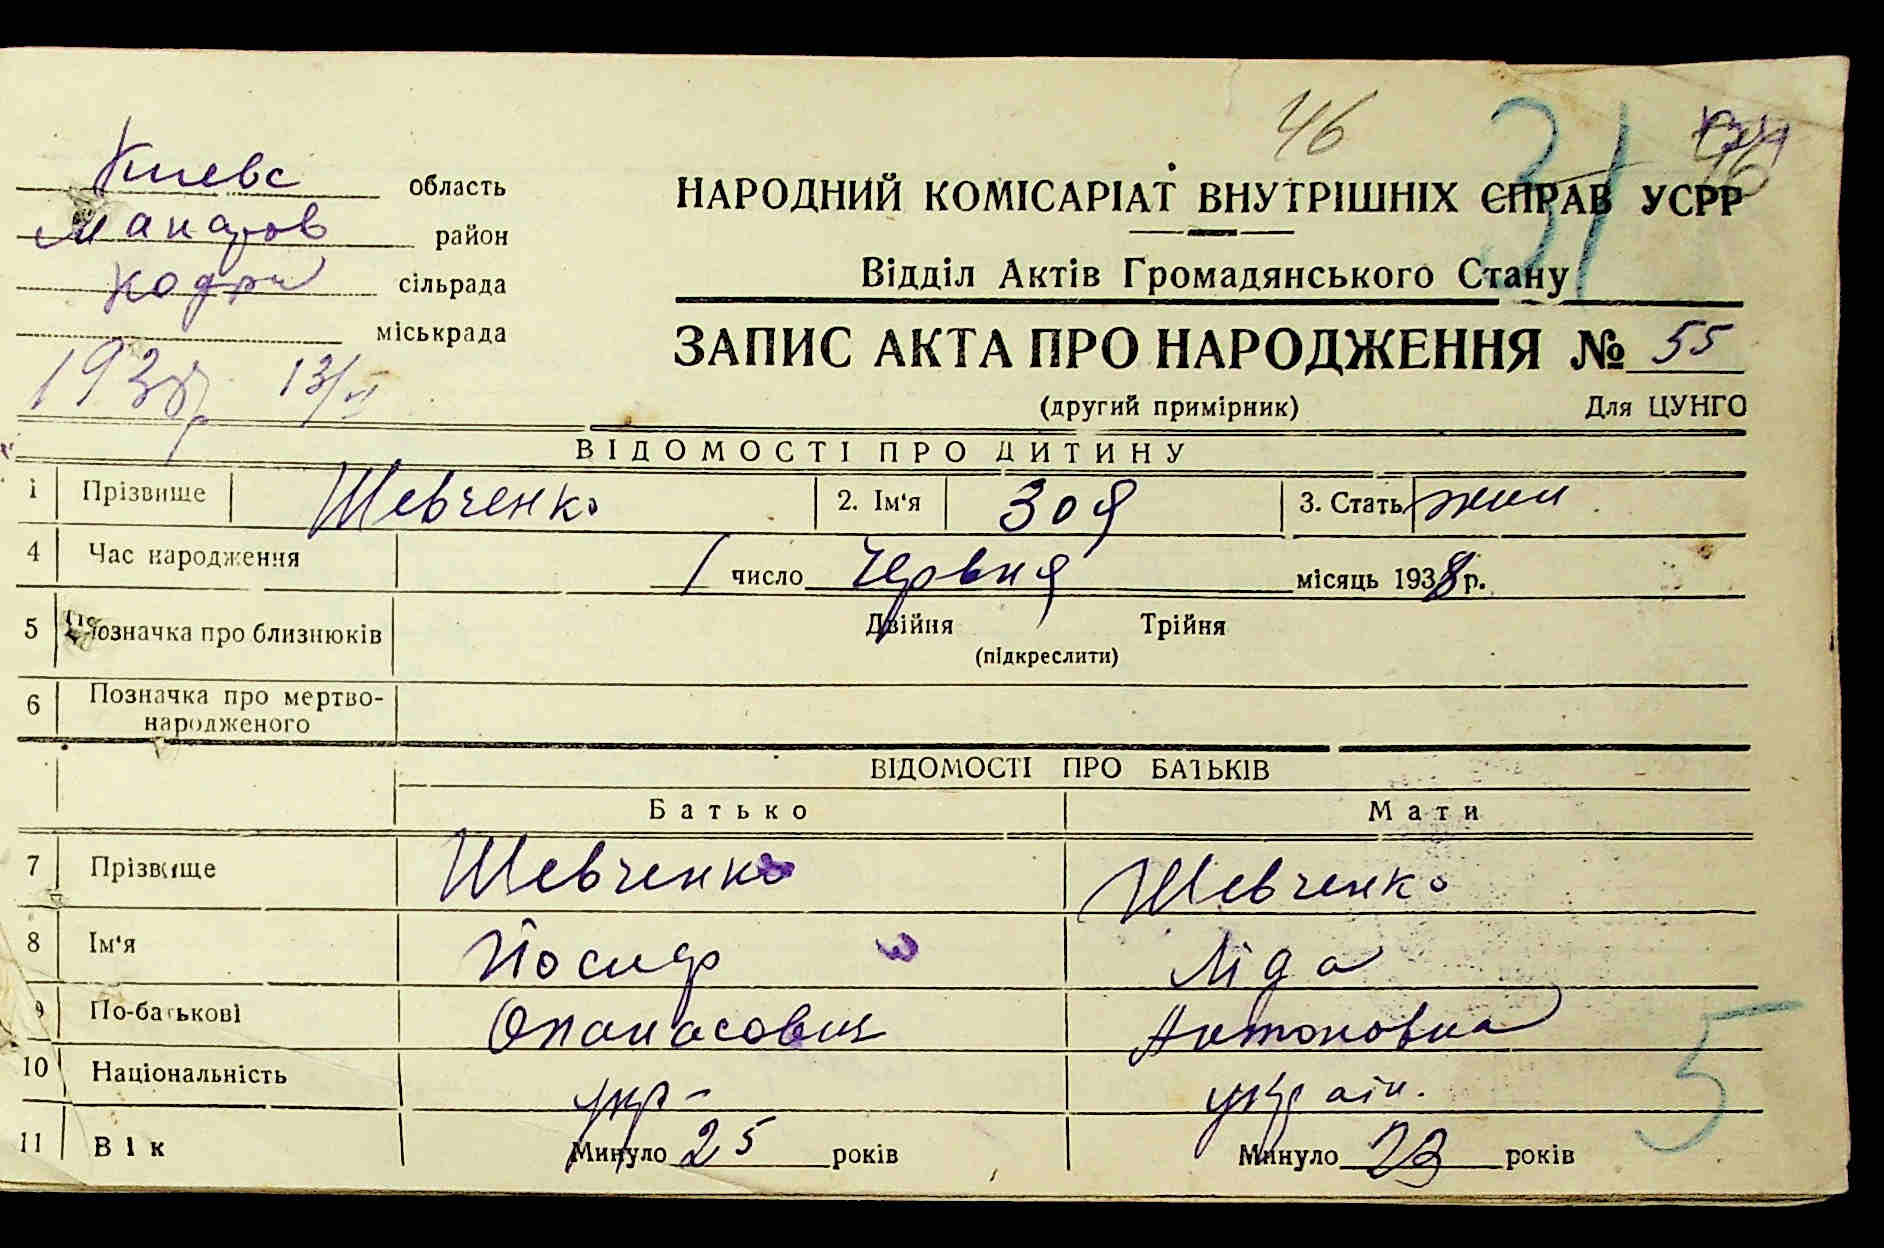 46 31 46
Києвс область
Макаров район
Кодри сільрада
міськрада
1938р 13/VI
НАРОДНИЙ КОМІСАРІАТ ВНУТРІШНІХ СПРАВ УСРР
Відділ Актів Громадянського Стану
ЗАПИС АКТА ПРО НАРОДЖЕННЯ № 55
(другий примірник) Для ЦУНГО
ВІДОМОСТІ ПРО ДИТИНУ
1 Прізвище Шевченко 2. Ім'я Зоя 3. Стать жін
4 Час народження 1 число Червня місяць 1938 р.
5 Позначка про близнюків Двійня Трійня
(підкреслити)
6 Позначка про мертво-
народженого
ВІДОМОСТІ ПРО БАТЬКІВ
Батько Мати
7 Прізвище Шевченко Шевченко
8 Ім'я Йосиф Ліда
9 По-батькові Опанасович Антоновна
10 Національність укр- україн.
5
11 Вік Минуло 25 років Минуло 23 років